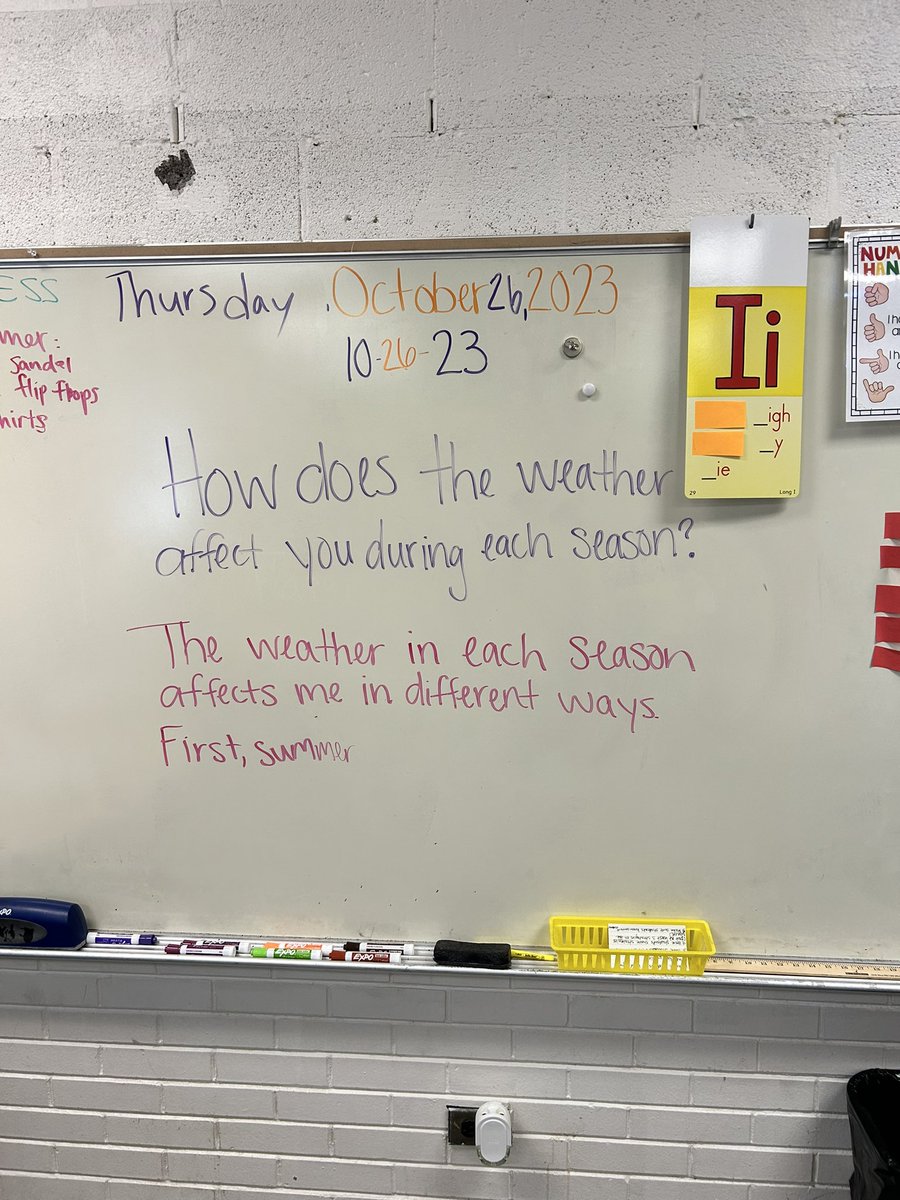 ESS
mer:
sandel
flip flops
hirts
Thursday, October 26, 2023
10-26-23
How does the weather
affect you during each season?
The weather in each season
affects me in different ways.
First, summer
Ii
_igh
_y
_ie
29 Long I
NUM
HAN
I ha
I h
EXPO
EXPO